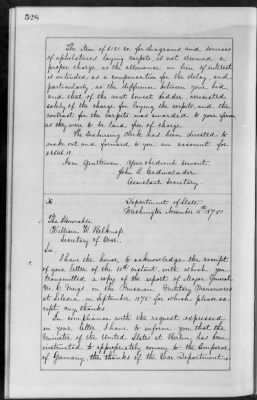 528
The item of $121.20 for diagrams and services
of upholsterers laying carpets, is not deemed a
proper charge as the allowance in lieu of interest
is intended, as a compensation for the delay, and
particularly, as the difference between your bid
and that of the next lowest bidder consisted
solely of the charge for laying the carpets, and the
contract for the carpets was awarded to your firm
as they were to be laid, free of charge.
The disbursing clerk has been directed to
make out and forward to you an account for
I am Gentlemen your obedient servant.
John L. Cadwalader
Assistant Secretary.
Department of State,
Washington November 15th 1875
To
The Honorable
William W. Belknap
Secretary of War.
Sir
I have the honor to acknowledge the receipt
of your letter of the 10th instant, with which you
transmitted, a copy of the report of Major General
M. C. Meigs, on the Prussian Military Manoeuvres
at Silesia in September 1875 for which please ac-
cept my thanks.
In compliance with the request expressed
in your letter, I have to inform you that the
Minister of the United States at Berlin, has been
instructed to appropriately convey to the Emperor
of Germany, the thanks of the War Department